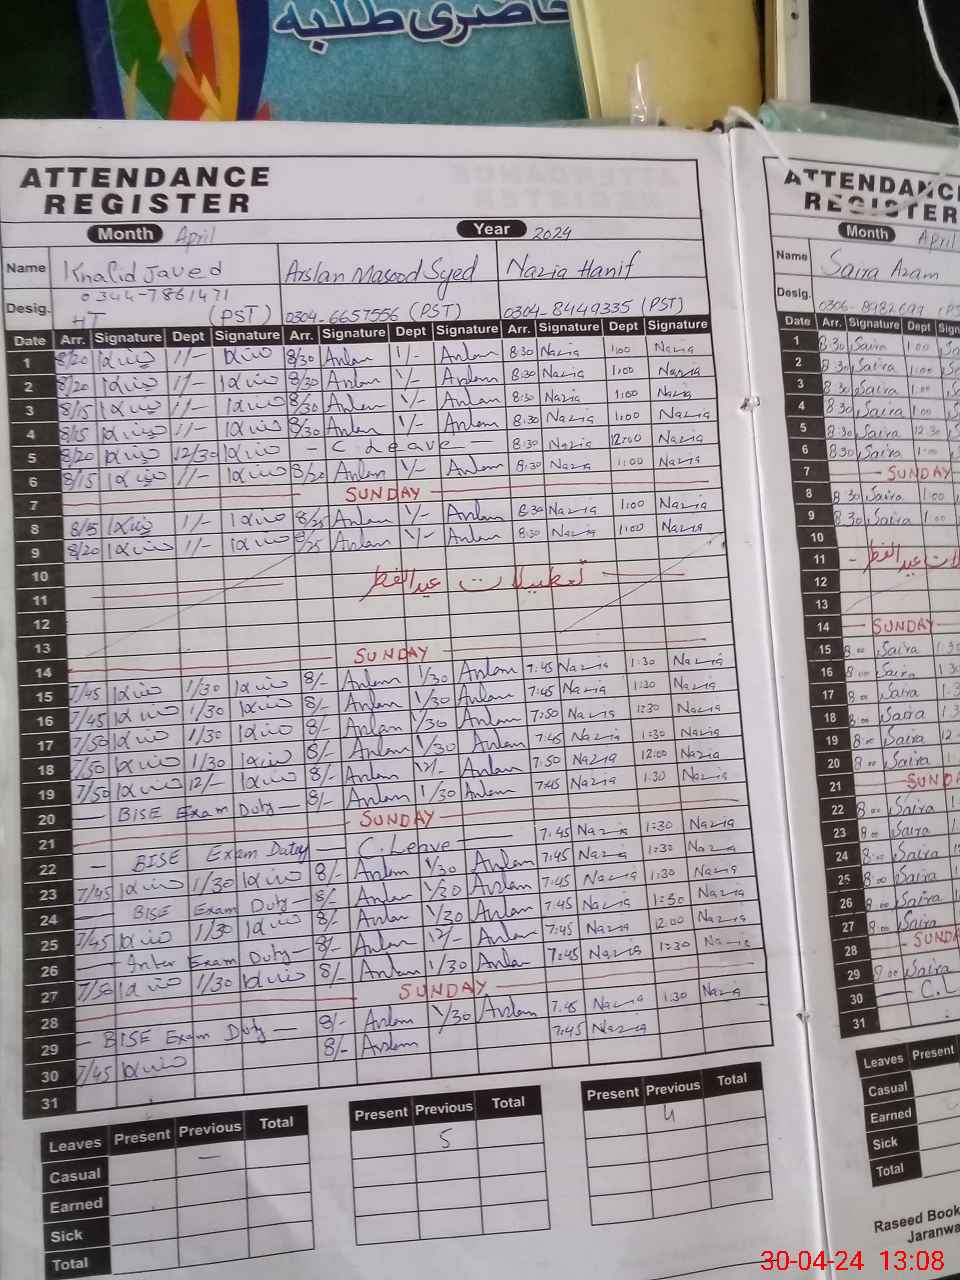 حاضری طلبہ
ATTENDANCE
REGISTER
Month April Year 2024
Name Khalid Javed Arslan Masood Syed Nazia Hanif
Desig. 0344-7861471 HT (PST) 0304-6657556 (PST) 0304-8449335 (PST)
Date Arr. Signature Dept Signature Arr. Signature Dept Signature Arr. Signature Dept Signature
1 8/20 1/- 8/30 Arslan 1/- Arslan 8:30 Nazia 1:00 Nazia
2 8/20 1/- 8/30 Arslan 1/- Arslan 8:30 Nazia 1:00 Nazia
3 8/15 1/- 8/30 Arslan 1/- Arslan 8:30 Nazia 1:00 Nazia
4 8/15 1/- 8/30 Arslan 1/- Arslan 8:30 Nazia 1:00 Nazia
5 8/20 12/30 - C Leave - 8:30 Nazia 12:00 Nazia
6 8/15 1/- 8/30 Arslan 1/- Arslan 8:30 Nazia 1:00 Nazia
7 SUNDAY
8 8/15 1/- 8/25 Arslan 1/- Arslan 8:30 Nazia 1:00 Nazia
9 8/20 1/- 8/25 Arslan 1/- Arslan 8:30 Nazia 1:00 Nazia
10
11 تعطیلات عیدالفطر
12
13
14 SUNDAY
15 7/45 1/30 8/- Arslan 1/30 Arslan 7:45 Nazia 1:30 Nazia
16 7/45 1/30 8/- Arslan 1/30 Arslan 7:45 Nazia 1:30 Nazia
17 7/50 1/30 8/- Arslan 1/30 Arslan 7:50 Nazia 1:30 Nazia
18 7/50 1/30 8/- Arslan 1/30 Arslan 7:45 Nazia 1:30 Nazia
19 7/50 12/- 8/- Arslan 12/- Arslan 7:50 Nazia 12:00 Nazia
20 - BISE Exam Duty - 8/- Arslan 1/30 Arslan 7:45 Nazia 1:30 Nazia
21 SUNDAY
22 - BISE Exam Duty - C. Leave - 7:45 Nazia 1:30 Nazia
23 7/45 1/30 8/- Arslan 1/30 Arslan 7:45 Nazia 1:30 Nazia
24 - BISE Exam Duty - 8/- Arslan 1/30 Arslan 7:45 Nazia 1:30 Nazia
25 7/45 1/30 8/- Arslan 1/30 Arslan 7:45 Nazia 1:30 Nazia
26 - Inter Exam Duty - 8/- Arslan 12/- Arslan 7:45 Nazia 12:00 Nazia
27 7/50 1/30 8/- Arslan 1/30 Arslan 7:45 Nazia 1:30 Nazia
28 SUNDAY
29 - BISE Exam Duty - 8/- Arslan 1/30 Arslan 7:45 Nazia 1:30 Nazia
30 7/45 8/- Arslan 7:45 Nazia
31
Leaves Present Previous Total Present Previous Total Present Previous Total
Casual - 5 4
Earned
Sick
Total
ATTENDANC
REGISTER
Month April
Name Saira Azam
Desig. 0306-8982697 (PS
Date Arr. Signature Dept
1 8:30 Saira 1:00
2 8:30 Saira 1:00
3 8:30 Saira 1:00
4 8:30 Saira 1:00
5 8:30 Saira 12:30
6 8:30 Saira 1:00
7 SUNDAY
8 8:30 Saira 1:00
9 8:30 Saira 1:00
10
11 عیدالفطر
12
13
14 SUNDAY
15 8:00 Saira 1:30
16 8:00 Saira 1:3
17 8:00 Saira 1:3
18 8:00 Saira 1:3
19 8:00 Saira 12
20 8:00 Saira 1
21 SUND
22 8:00 Saira 1
23 8:00 Saira
24 8:00 Saira
25 8:00 Saira
26 8:00 Saira
27 8:00 Saira
28 SUND
29 8:00 Saira
30 C.L
31
Leaves Present
Casual
Earned
Sick
Total
Raseed Book
Jaranwa
30-04-24 13:08